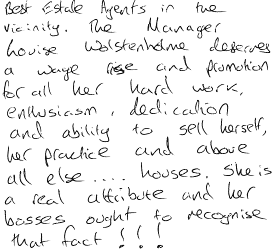 Best Estate Agents in the
vicinity. The Manager
Louise Wolstenholme deserves
a wage rise and promotion
for all her hard work,
enthusiasm, dedication
and ability to sell herself,
her practice and above
all else .... houses. She is
a real attribute and her
bosses ought to recognise
that fact !!!